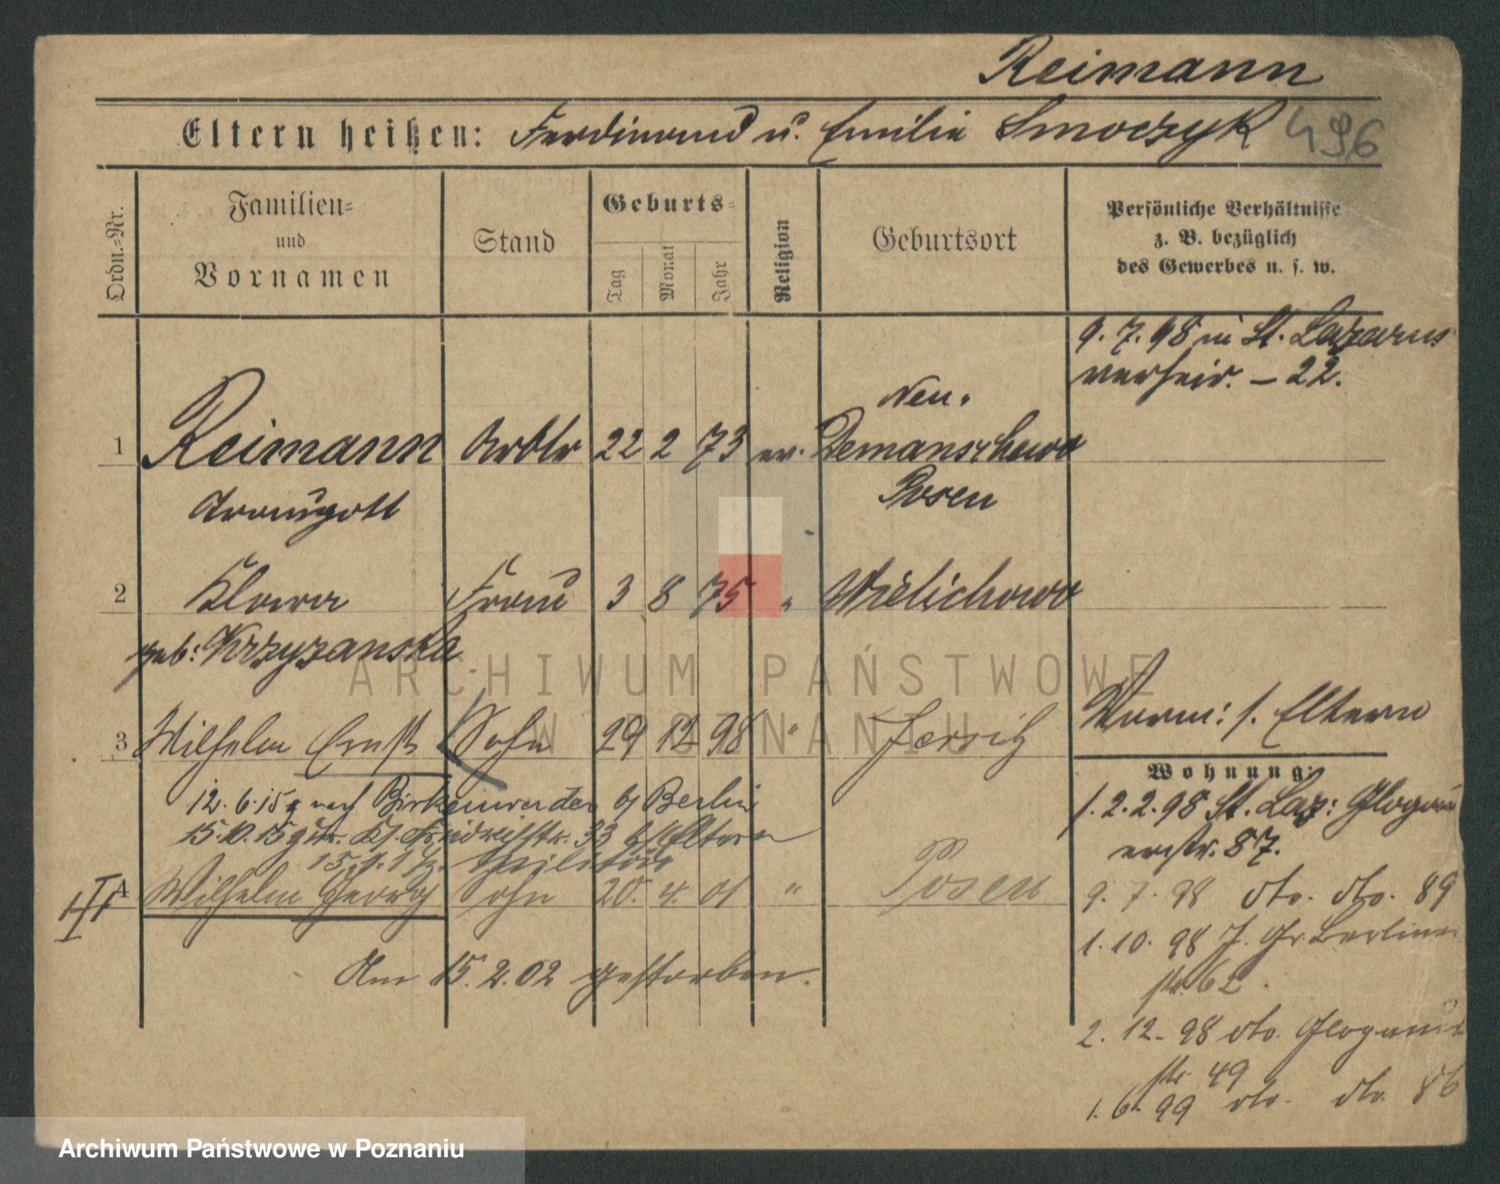 Reimann
Eltern heißen: Ferdinand u. Emilie Smoczyk 496
Ordn.-Nr.
Familien-
und
Vornamen
Stand
Geburts-
Tag
Monat
Jahr
Religion
Geburtsort
Persönliche Verhältnisse
z. B. bezüglich
des Gewerbes u. s. w.
9. 7. 98 in St. Lazarus
verheir. – 22.
Neu-
1 Reimann Arbtr 22 2 73 ev. Demanschewo
Traugott Posen
2 Klara Frau 3 8 75 " Wielichowo
geb: Krzyzanska
Vorm: s. Eltern
3 Wilhelm Ernst Sohn 29 12 98 " Jersitz
Wohnung:
12. 6. 15 nach Birkenwerder b/ Berlin
1. 2. 2. 98 St. Laz: Glogau
15. 10. 15 33 b/ Eltern
erstr. 87.
Militär
4 Wilhelm Georg Sohn 20. 4. 01 " Posen
9. 7. 98 dto. dto. 89
1. 10. 98 J. Gr. Berliner
str. 62.
Am 15. 2. 02 gestorben.
2. 12. 98 dto. Glogauer
str 49
1. 6. 99 dto. dto. 86
ARCHIWUM PAŃSTWOWE
W POZNANIU
Archiwum Państwowe w Poznaniu